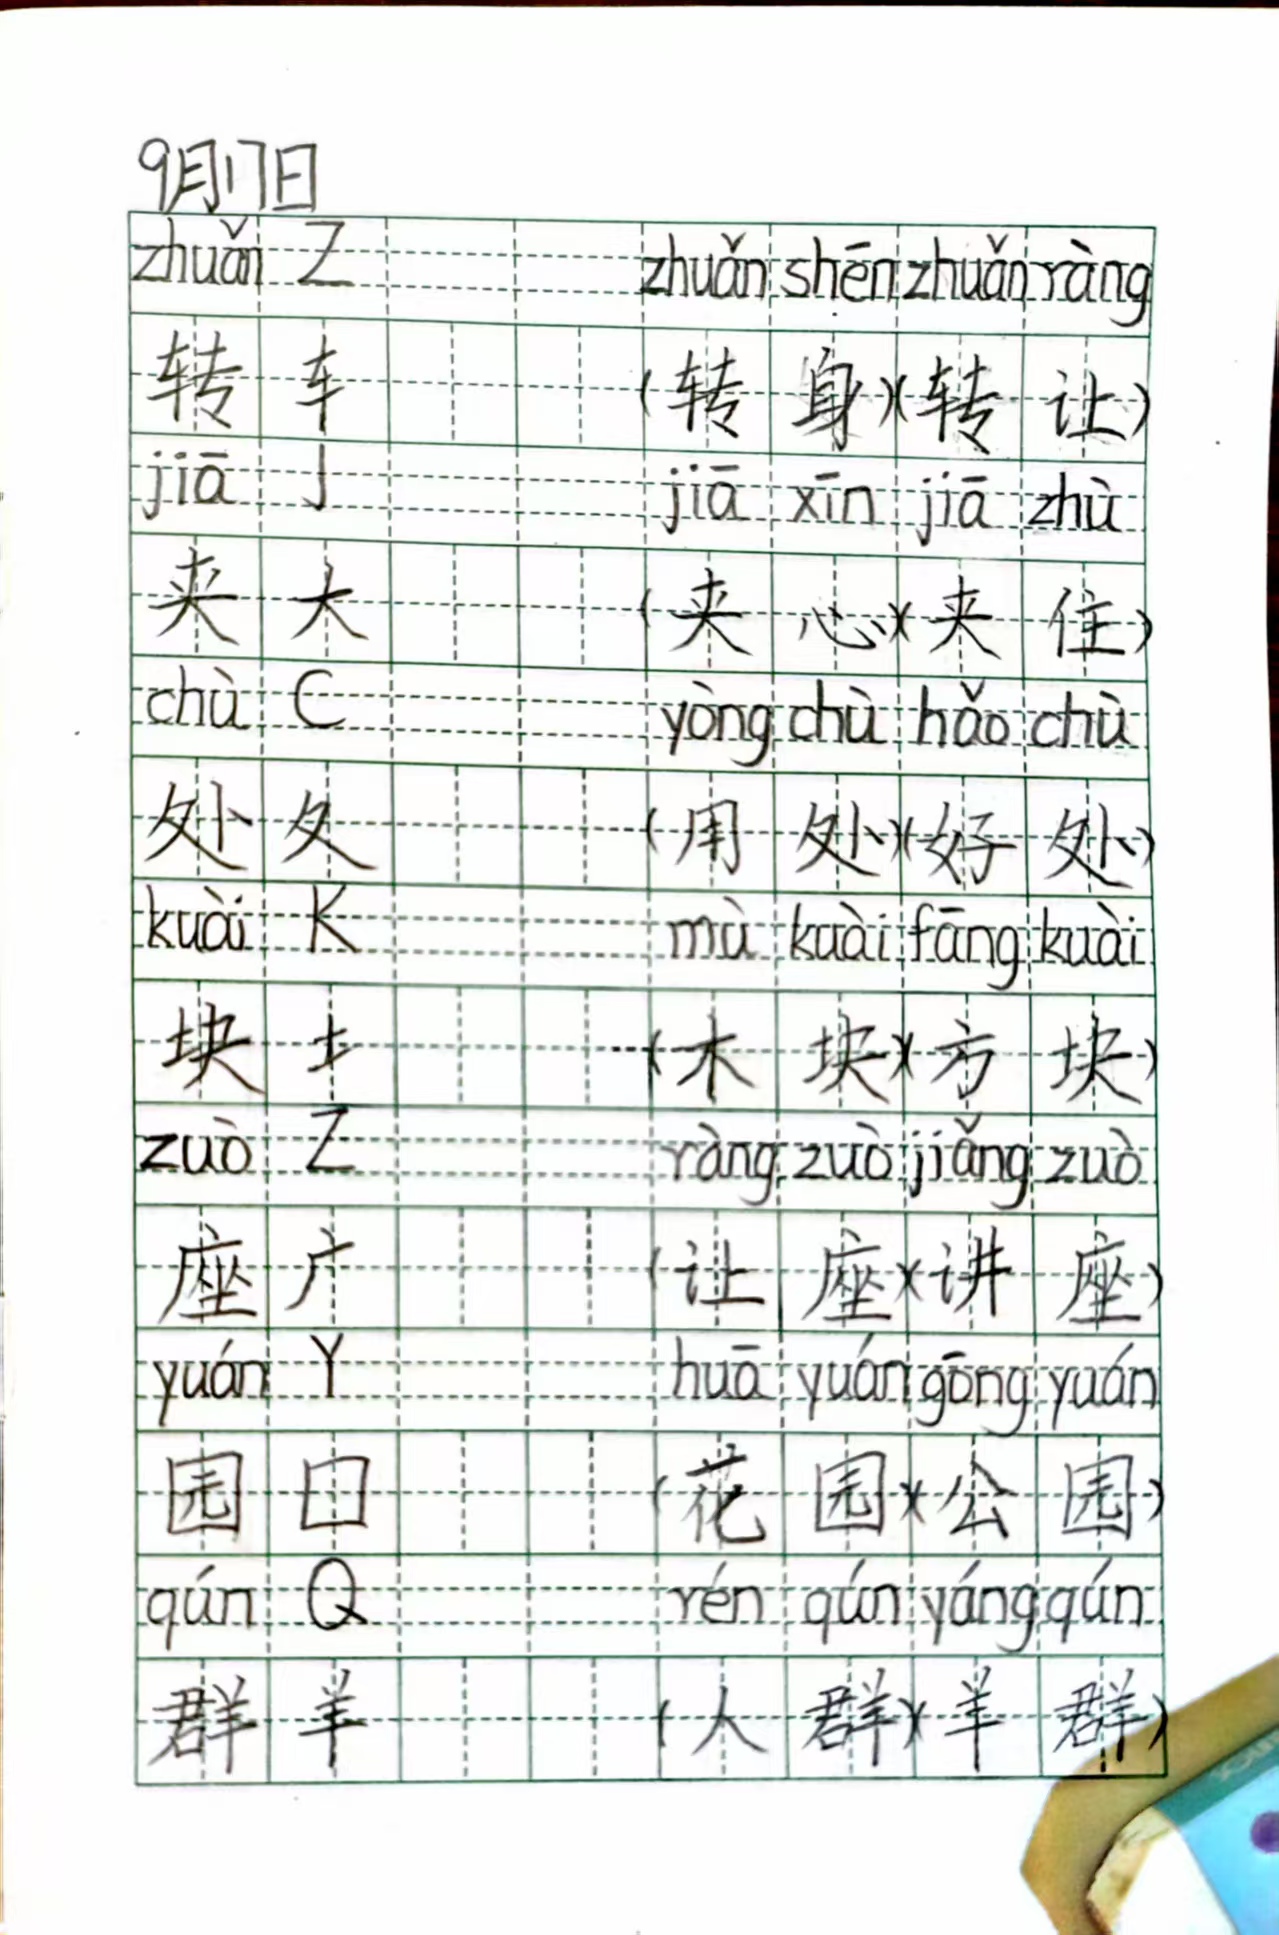 9月17日
zhuǎn Z zhuǎn shēn zhuǎn ràng
转 车 (转 身)(转 让)
jiā J jiā xīn jiā zhù
夹 大 (夹 心)(夹 住)
chù C yòng chù hǎo chù
处 夂 (用 处)(好 处)
kuài K mù kuài fāng kuài
块 土 (木 块)(方 块)
zuò Z ràng zuò jiǎng zuò
座 广 (让 座)(讲 座)
yuán Y huā yuán gōng yuán
园 囗 (花 园)(公 园)
qún Q rén qún yáng qún
群 羊 (人 群)(羊 群)